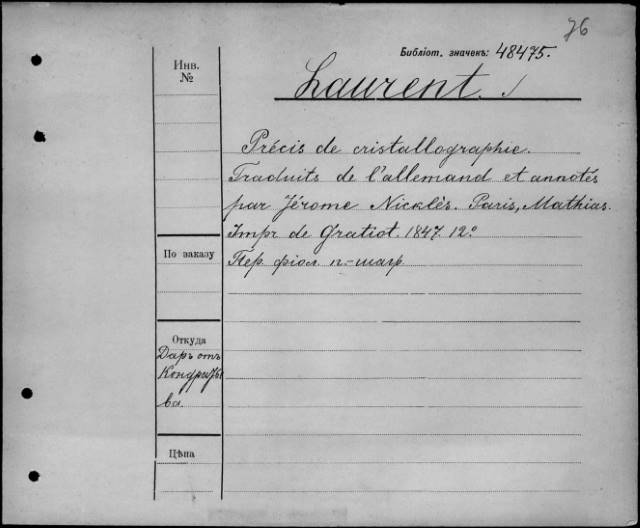 76
Библіот. значекъ: 48475.
Инв.
№
Laurent.
Précis de cristallographie.
Traduits de l'allemand et annotés
par Jérome Nicklès. Paris, Mathias.
Impr de Gratiot. 1847. 12º
По заказу
Пер. фіол. п-шагр
Откуда
Даръ отъ
Кондратье
ва
Цѣна